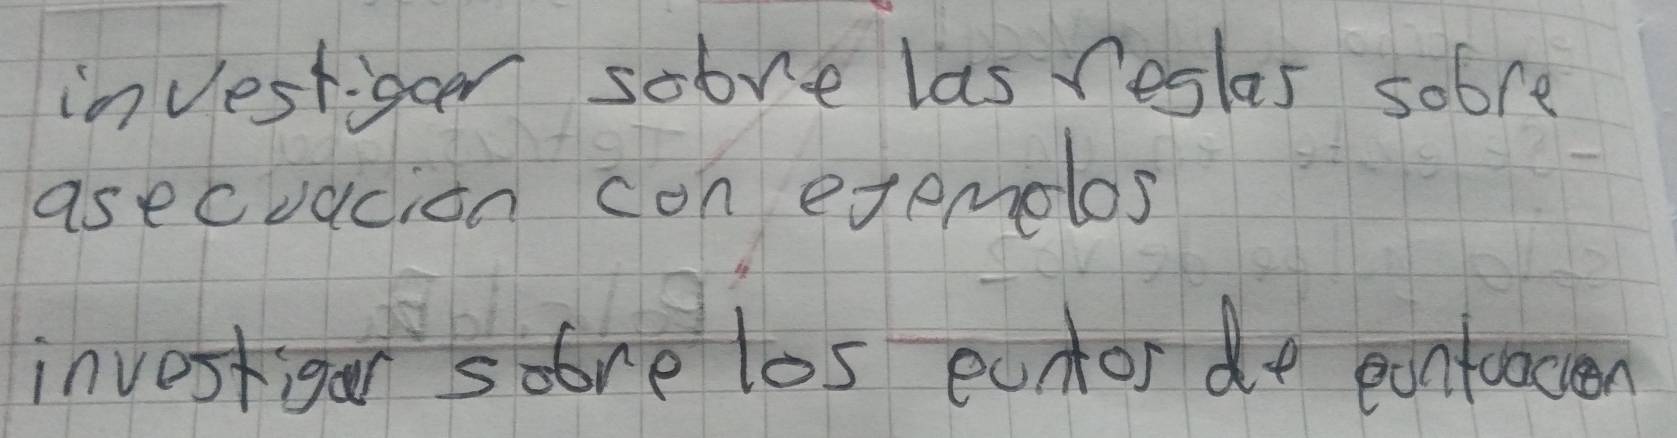 investigar sobre las reglas sobre
asecuacion con ejemplos
investigar sobre los puntos de puntuacion